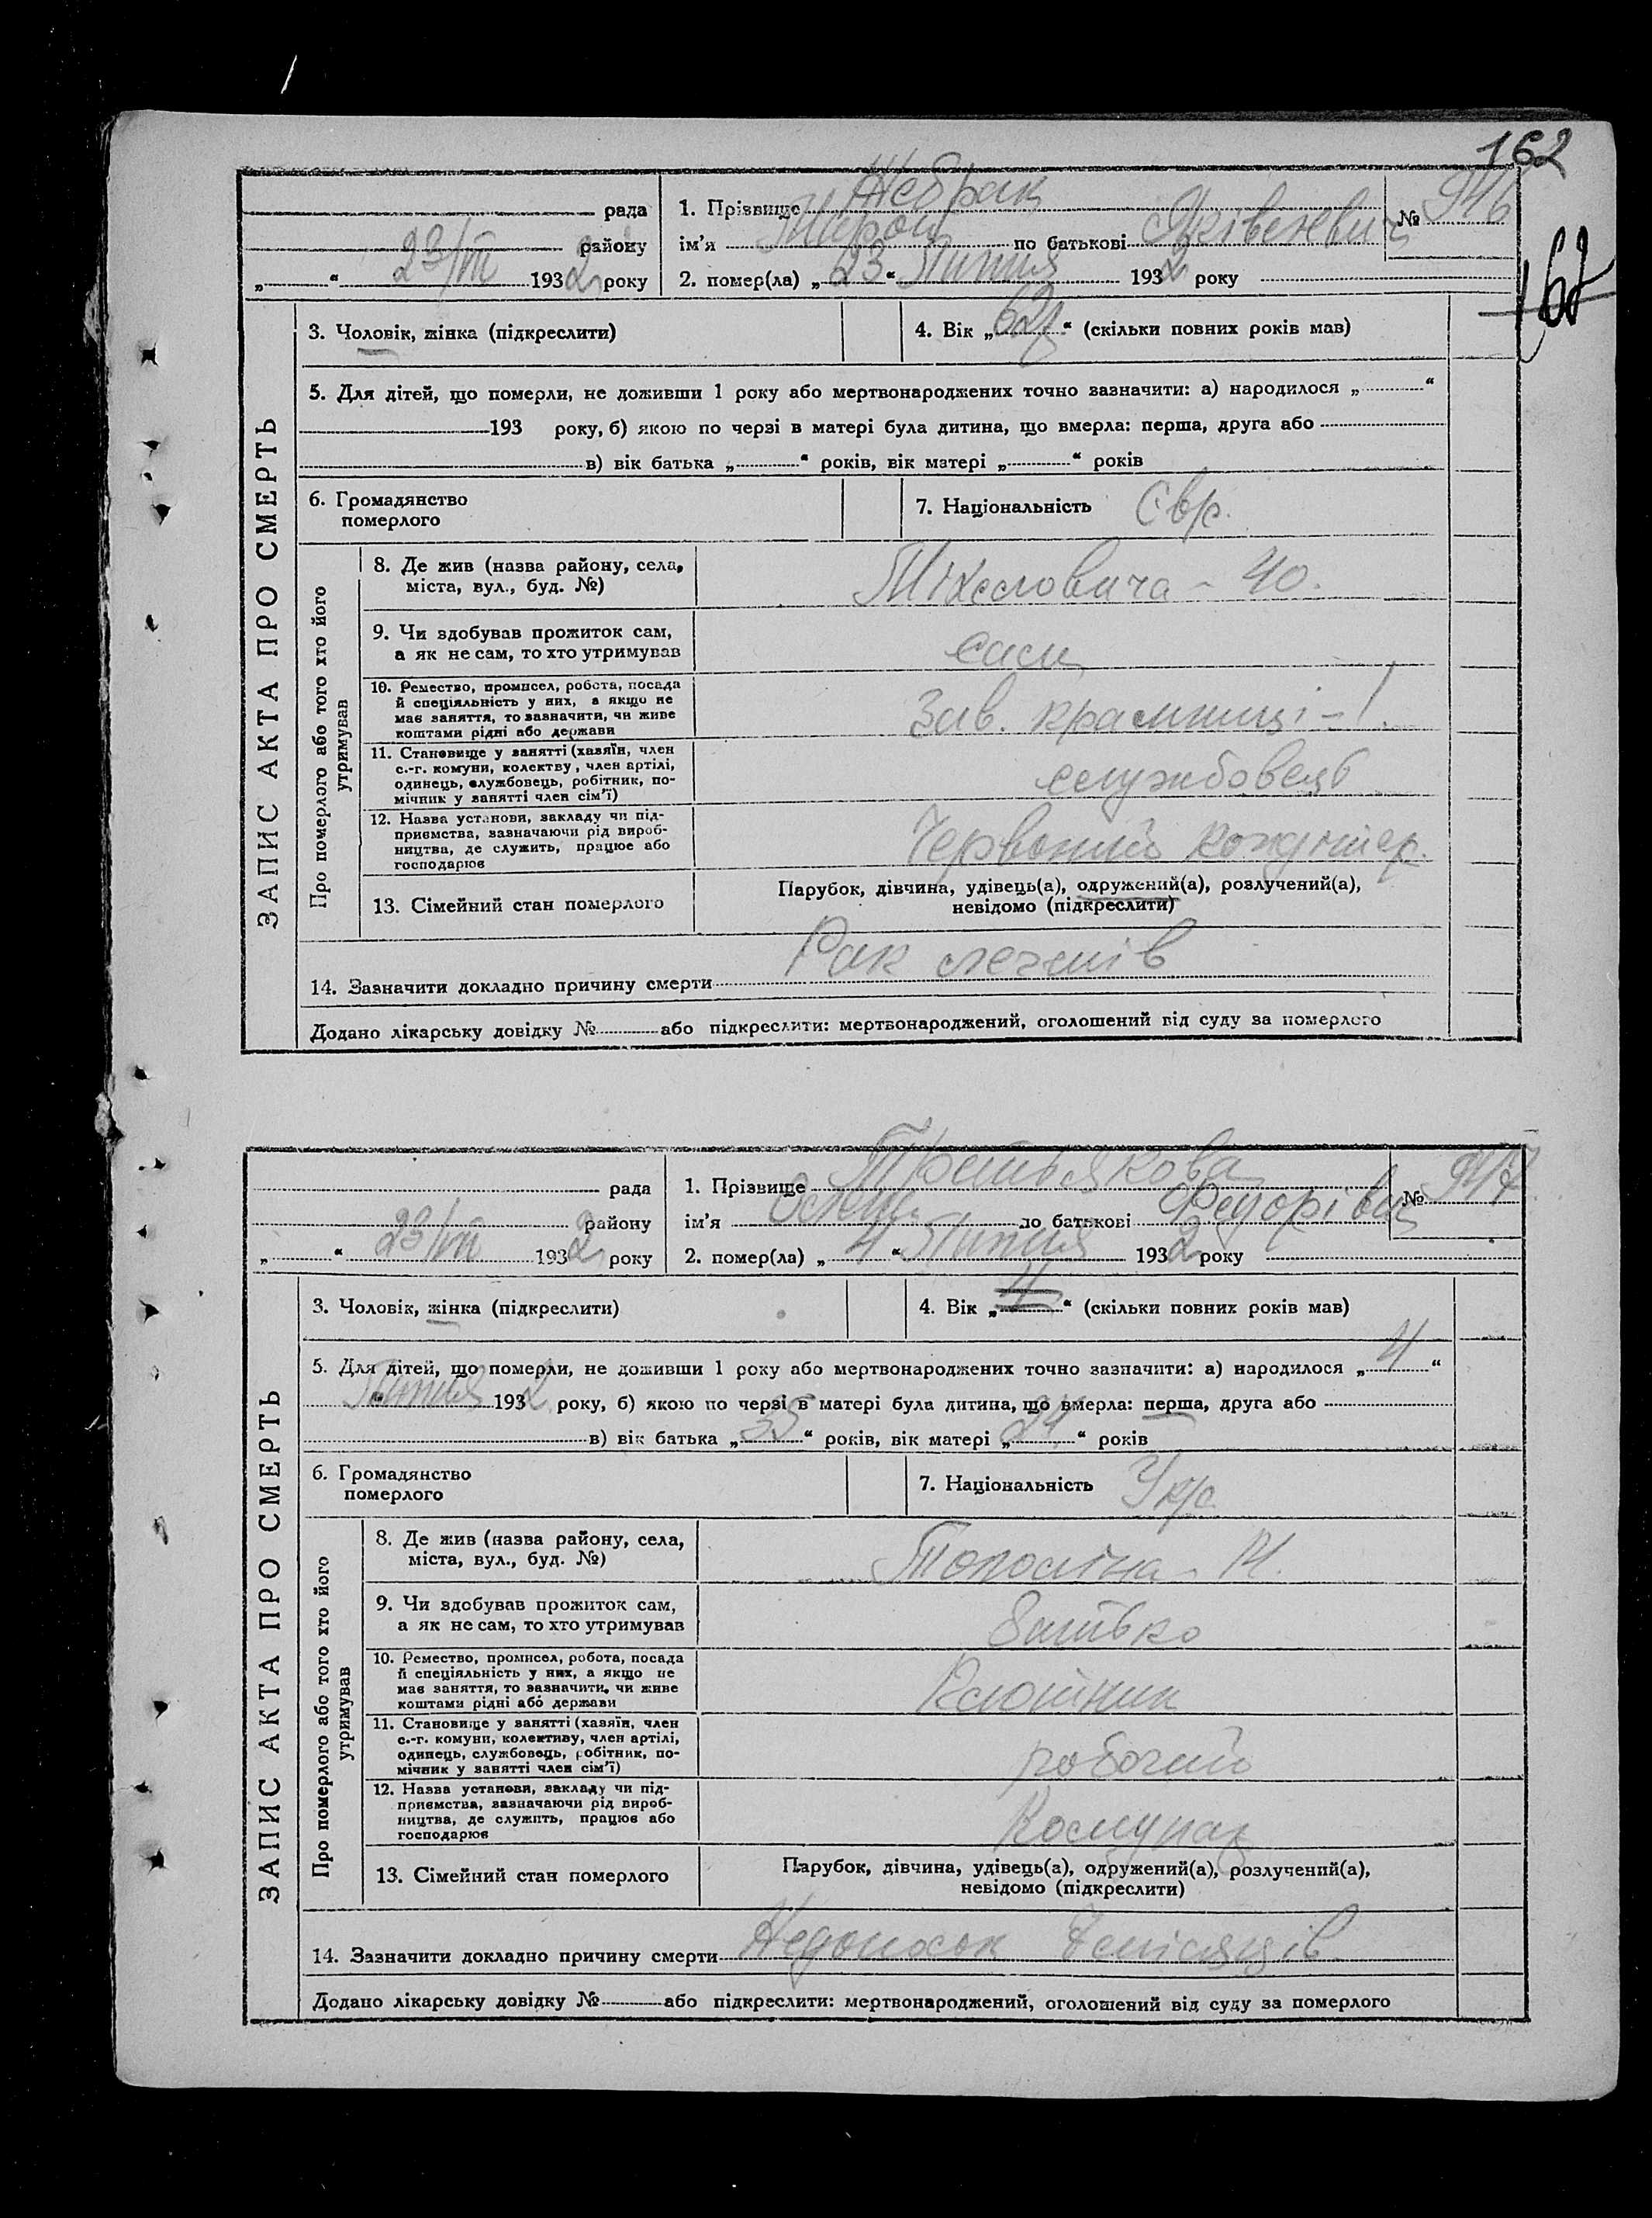 162
рада
району
23/VII 1932 року
1. Прізвище Жебрак
ім'я Мирон по батькові
№ 946
2. помер(ла) „23“ Липня 1932 року
162
ЗАПИС АКТА ПРО СМЕРТЬ
3. Чоловік, жінка (підкреслити)
4. Вік „62р.“ (скільки повних років мав)
5. Для дітей, що померли, не доживши 1 року або мертвонароджених точно зазначити: а) народилося „ “
193 року, б) якою по черзі в матері була дитина, що вмерла: перша, друга або
в) вік батька „ “ років, вік матері „ “ років
6. Громадянство
померлого
7. Національність Євр.
Про померлого або того хто його
утримував
8. Де жив (назва району, села,
міста, вул., буд. №)
Міхеловича - 40.
9. Чи здобував прожиток сам,
а як не сам, то хто утримував
сам
10. Ремество, промисел, робота, посада
й спеціяльність у них, а якщо не
має заняття, то зазначити, чи живе
коштами рідні або держави
Зав. крамниці - 1.
11. Становище у занятті (хазяїн, член
с.-г. комуни, колектву, член артілі,
одинець, службовець, робітник, по-
мічник у занятті член сім'ї)
службовець
12. Назва установи, закладу чи під-
приємства, зазначаючи рід вироб-
ництва, де служить, працює або
господарює
Червоний кондитер.
13. Сімейний стан померлого
Парубок, дівчина, удівець(а), одружений(а), розлучений(а),
невідомо (підкреслити)
14. Зазначити докладно причину смерти Рак легенів
Додано лікарську довідку № або підкреслити: мертвонароджений, оголошений від суду за померлого
рада
району
23/VII 1932 року
1. Прізвище Третьякова
ім'я по батькові Федорівна
№ 947
2. помер(ла) „4“ Липня 1932 року
ЗАПИС АКТА ПРО СМЕРТЬ
3. Чоловік, жінка (підкреслити)
4. Вік „4“ (скільки повних років мав)
5. Для дітей, що померли, не доживши 1 року або мертвонароджених точно зазначити: а) народилося „4“
Липня 1932 року, б) якою по черзі в матері була дитина, що вмерла: перша, друга або
в) вік батька „35“ років, вік матері „24“ років
6. Громадянство
померлого
7. Національність Укр.
Про померлого або того хто його
утримував
8. Де жив (назва району, села,
міста, вул., буд. №)
Тополіна - 14.
9. Чи здобував прожиток сам,
а як не сам, то хто утримував
батько
10. Ремество, промисел, робота, посада
й спеціяльність у них, а якщо не
має заняття, то зазначити, чи живе
коштами рідні або держави
11. Становище у занятті (хазяїн, член
с.-г. комуни, колективу, член артілі,
одинець, службовець, робітник, по-
мічник у занятті член сім'ї)
робочий
12. Назва установи, закладу чи під-
приємства, зазначаючи рід вироб-
ництва, де служить, працює або
господарює
Комунар
13. Сімейний стан померлого
Парубок, дівчина, удівець(а), одружений(а), розлучений(а),
невідомо (підкреслити)
14. Зазначити докладно причину смерти Недоносок 7 місяців
Додано лікарську довідку № або підкреслити: мертвонароджений, оголошений від суду за померлого